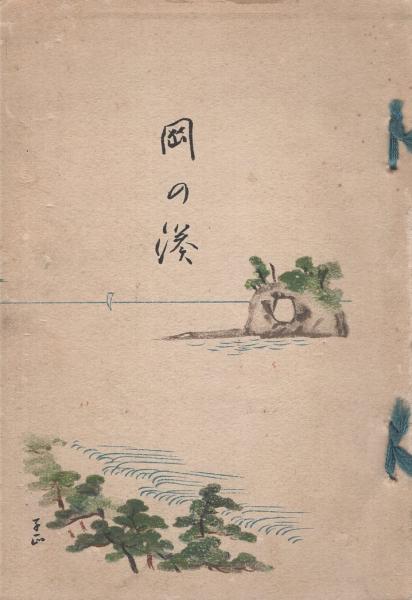 岡の湊